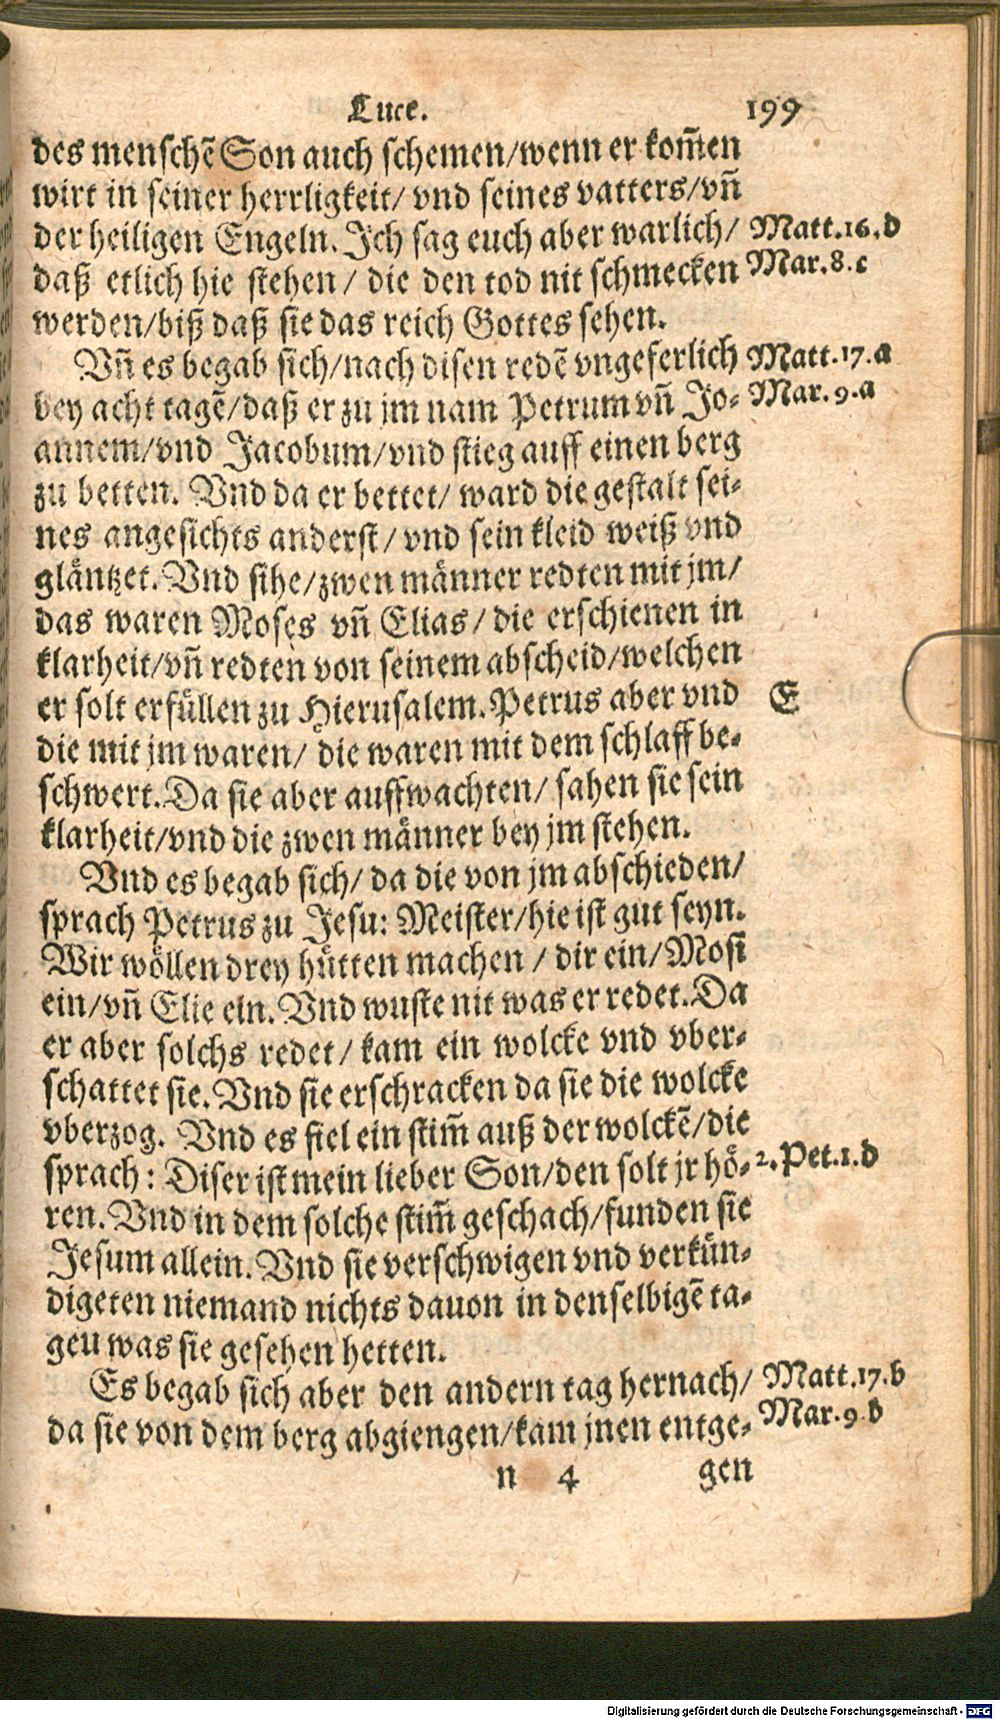 Luce. 199
des menschẽ Son auch schemen/wenn er kom̃en
wirt in seiner herrligkeit/ vnd seines vatters/vñ
der heiligen Engeln. Ich sag euch aber warlich/ Matt.16.d
daß etlich hie stehen/ die den tod nit schmecken Mar.8.c
werden/biß daß sie das reich Gottes sehen.
Vñ es begab sich/nach disen redẽ vngeferlich Matt.17.a
bey acht tagẽ/daß er zu jm nam Petrum vñ Jo- Mar.9.a
annem/vnd Jacobum/vnd stieg auff einen berg
zu betten. Vnd da er bettet/ ward die gestalt sei-
nes angesichts anderst/ vnd sein kleid weiß vnd
gläntzet. Vnd sihe/zwen männer redten mit jm/
das waren Moses vñ Elias/ die erschienen in
klarheit/vñ redten von seinem abscheid/welchen
er solt erfüllen zu Hierusalem. Petrus aber vnd E
die mit jm waren/ die waren mit dem schlaff be-
schwert. Da sie aber auffwachten/ sahen sie sein
klarheit/vnd die zwen männer bey jm stehen.
Vnd es begab sich/ da die von jm abschieden/
sprach Petrus zu Jesu: Meister/hie ist gut seyn.
Wir wöllen drey hütten machen / dir ein/Mosi
ein/vñ Elie eln. Vnd wuste nit was er redet. Da
er aber solchs redet/ kam ein wolcke vnd vber-
schattet sie. Vnd sie erschracken da sie die wolcke
vberzog. Vnd es fiel ein stim̃ auß der wolckẽ/die
sprach: Diser ist mein lieber Son/den solt jr hö- 2.Pet.1.d
ren. Vnd in dem solche stim̃ geschach/funden sie
Jesum allein. Vnd sie verschwigen vnd verkün-
digeten niemand nichts dauon in denselbigẽ ta-
geu was sie gesehen hetten.
Es begab sich aber den andern tag hernach/ Matt.17.b
da sie von dem berg abgiengen/kam jnen entge- Mar.9.b
n 4 gen
Digitalisierung gefördert durch die Deutsche Forschungsgemeinschaft - DFG